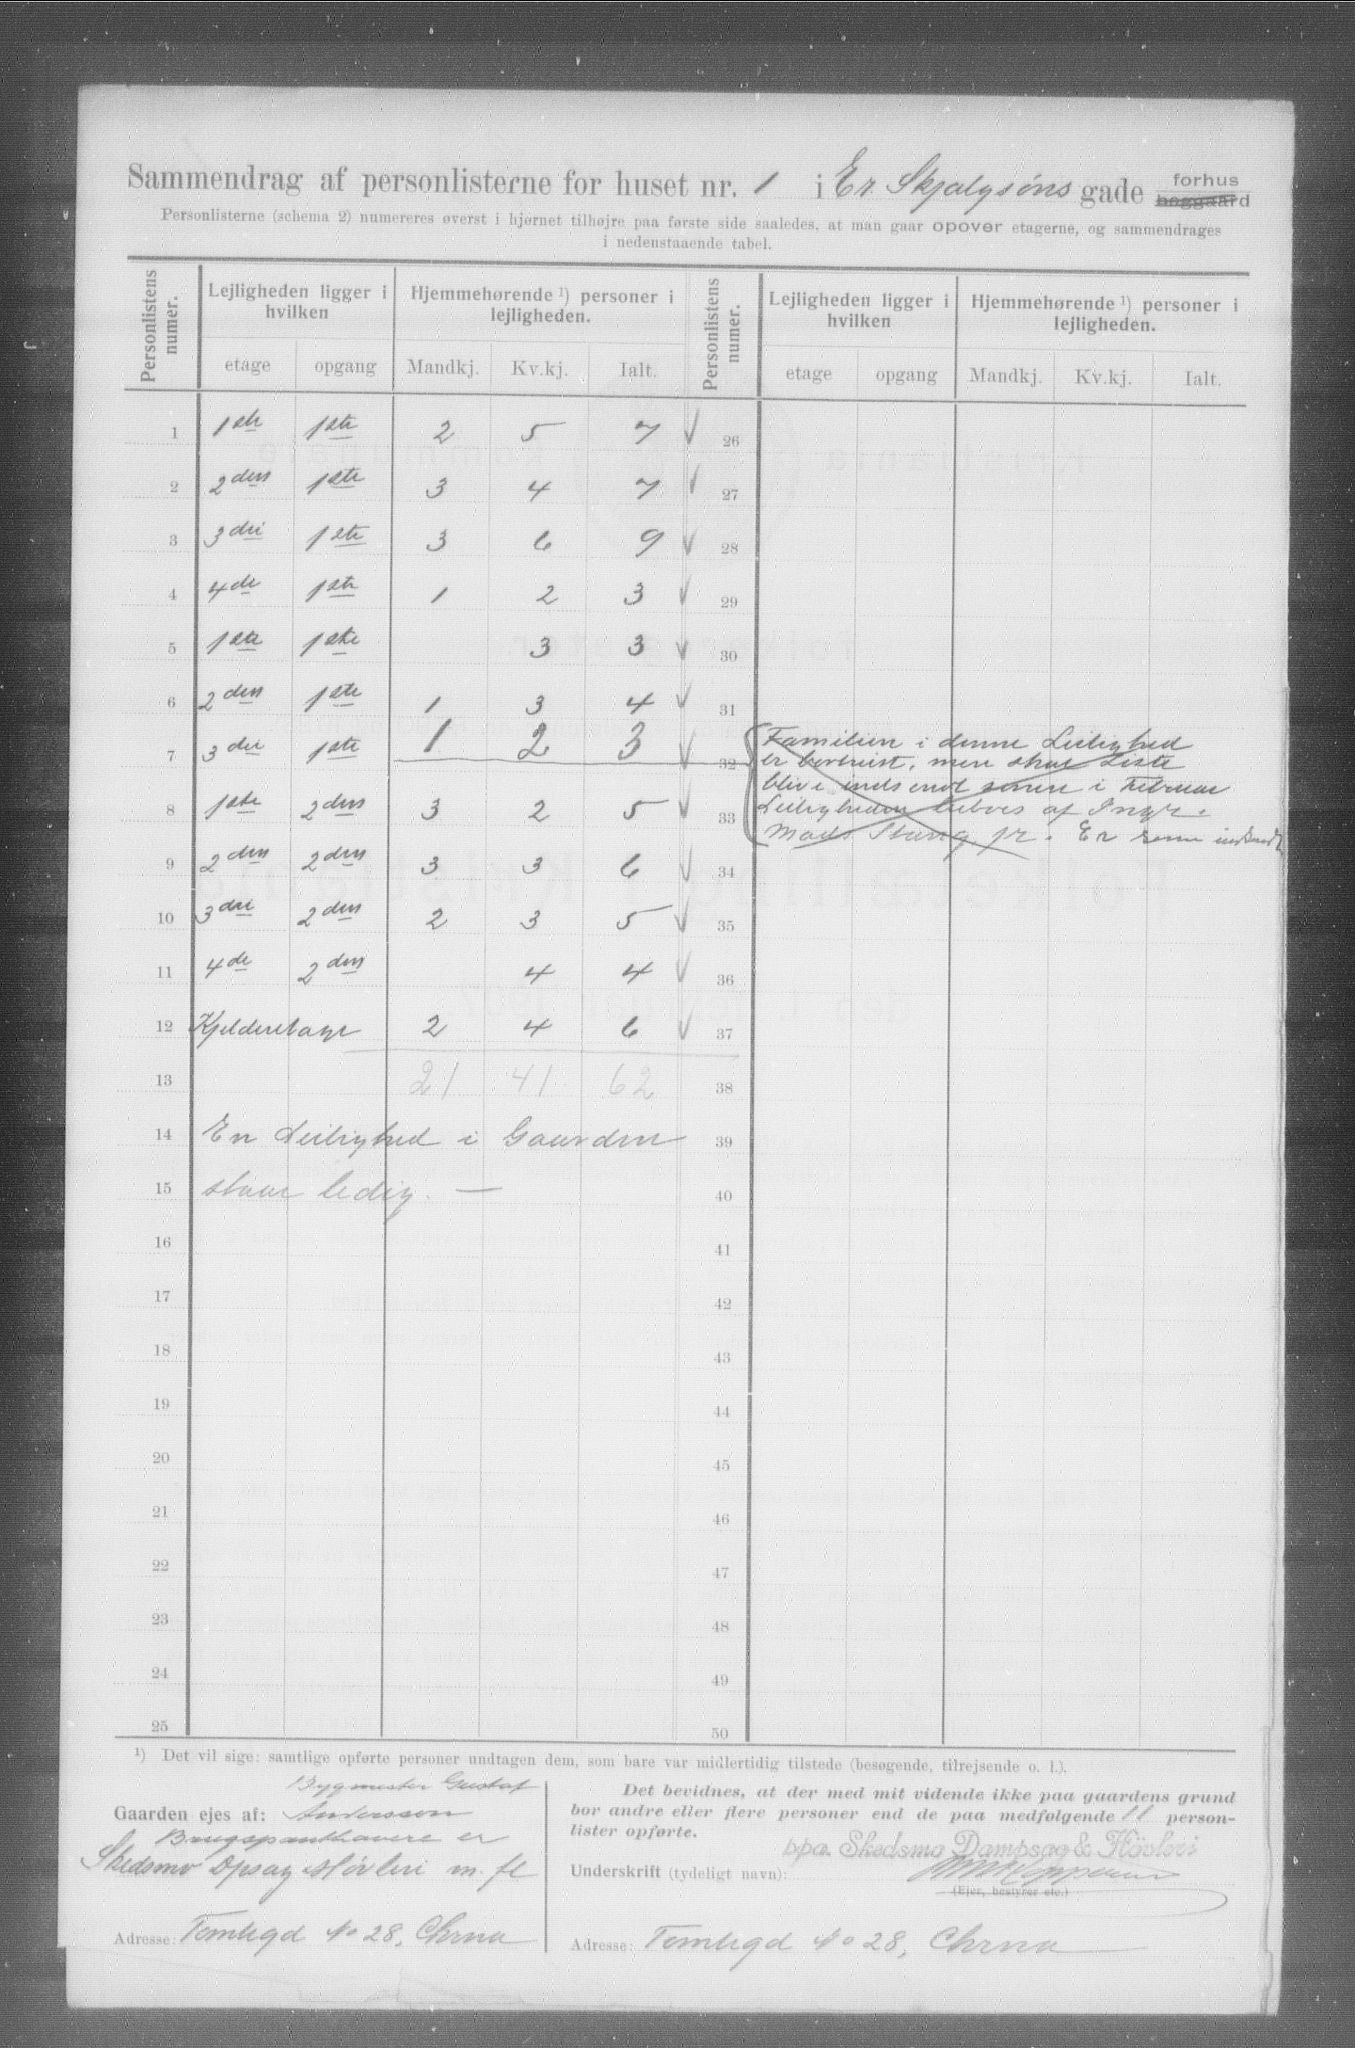 Sammendrag af personlisterne for huset nr. 1 i Er Skjalgsøns gade forhus baggaard
Personlisterne (schema 2) numereres øverst i hjørnet tilhøjre paa første side saaledes, at man gaar opover etagerne, og sammendrages
i nedenstaaende tabel.
Personlistens numer. Lejligheden ligger i hvilken Hjemmehørende ¹) personer i lejligheden. Personlistens numer. Lejligheden ligger i hvilken Hjemmehørende ¹) personer i lejligheden.
etage opgang Mandkj. Kv.kj. Ialt. etage opgang Mandkj. Kv.kj. Ialt.
1 1ste 1ste 2 5 7 √ 26
2 2den 1ste 3 4 7 √ 27
3 3die 1ste 3 6 9 √ 28
4 4de 1ste 1 2 3 √ 29
5 1ste 1ste 3 3 √ 30
6 2den 1ste 1 3 4 √ 31
7 3die 1ste 1 2 3 √ 32
8 1ste 2den 3 2 5 √ 33
Familien i denne Leilighed
er bortreist, men skal Liste
blive indsendt senere i Februar
Leiligheden beboes af Ingr.
Mads Stang jr. Er senere indsendt
9 2den 2den 3 3 6 √ 34
10 3die 2den 2 3 5 √ 35
11 4de 2den 4 4 √ 36
12 Kjelderetage 2 4 6 √ 37
13 21 41 62 38
14 En Leilighed i Gaarden 39
15 staar ledig. — 40
16 41
17 42
18 43
19 44
20 45
21 46
22 47
23 48
24 49
25 50
¹) Det vil sige: samtlige opførte personer undtagen dem, som bare var midlertidig tilstede (besøgende, tilrejsende o. l.).
Bygmester Gustaf
Gaarden ejes af: Andersson
Brugspanthavere er
Skedsmo Dpsag & Høvleri m. fl
Adresse: Tomtegd No 28, Chrna
Det bevidnes, at der med mit vidende ikke paa gaardens grund
bor andre eller flere personer end de paa medfølgende 11 person-
lister opførte.
ppa. Skedsmo Dampsag & Hövleri
Underskrift (tydeligt navn):
(Ejer, bestyrer etc.)
Adresse: Tomtegd No 28, Chrna